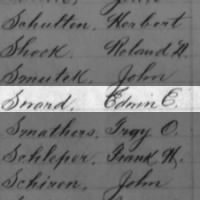 Schutten, Herbert
Shock, Roland H.
Smutek, John
Snard, Edwin E.
Smathers, Troy O.
Schleper, Frank W.
Schiron, John